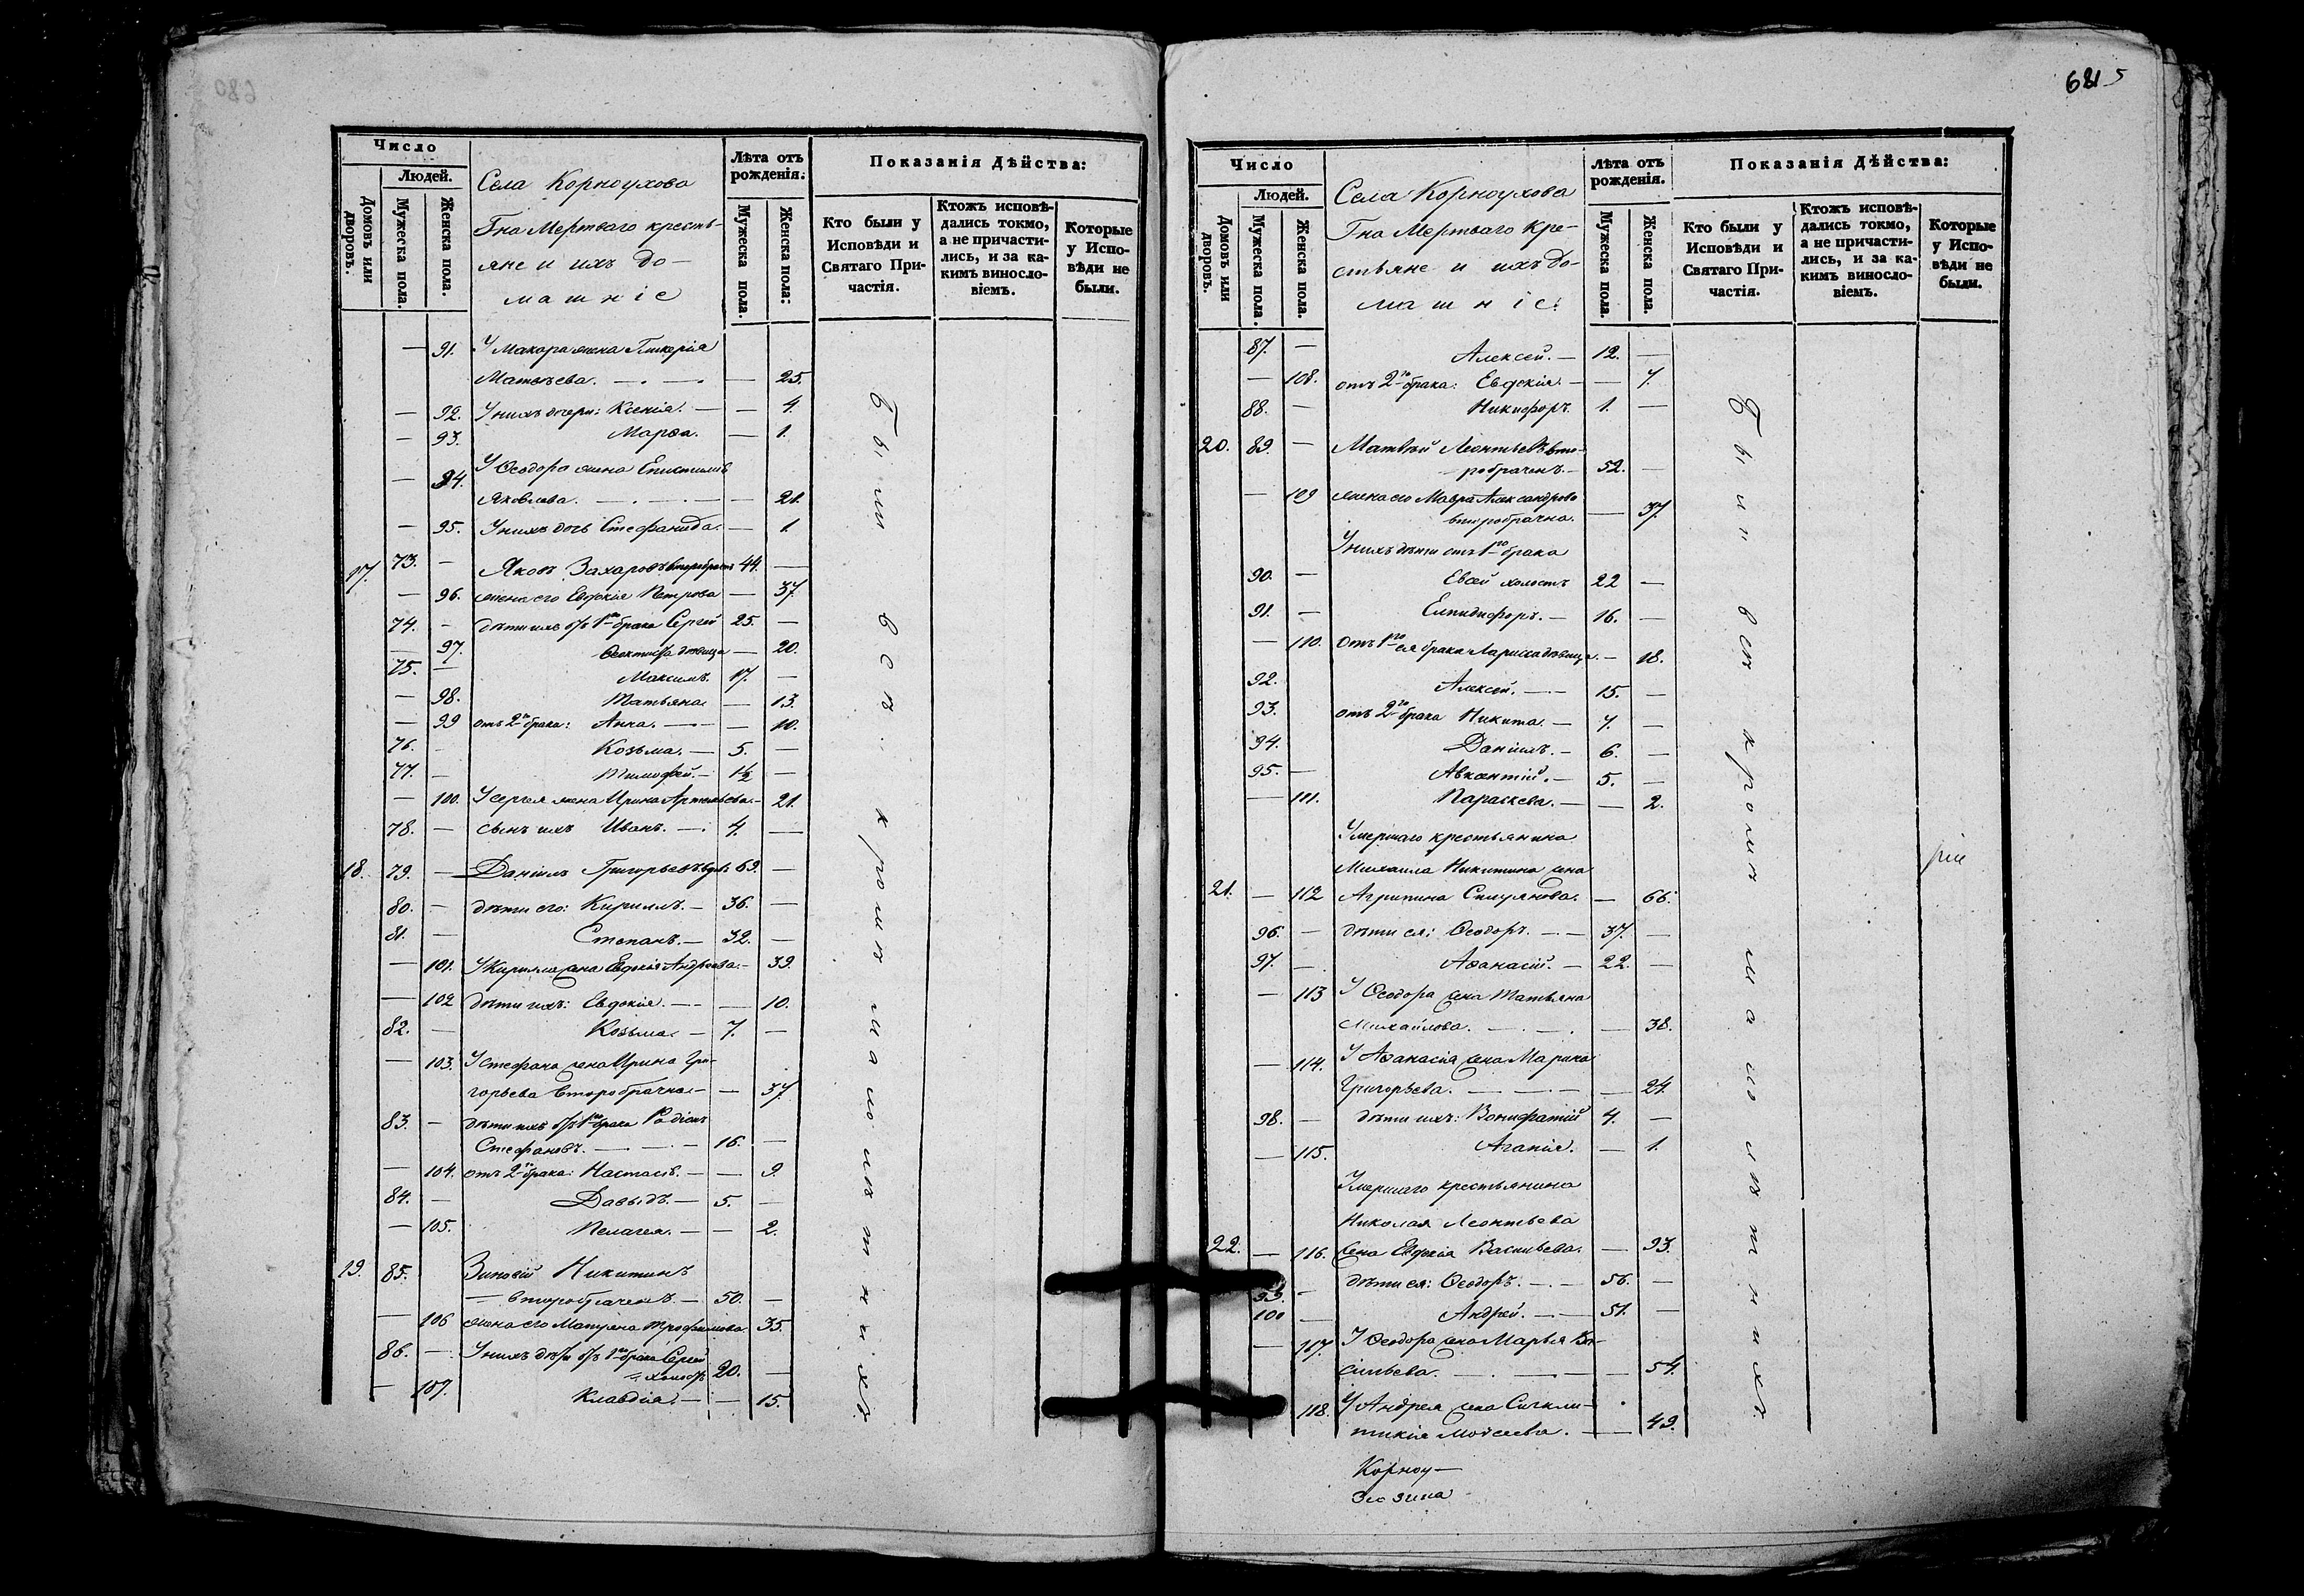 681 5
Число
Людей.
Домовъ или дворовъ.
Мужеска пола.
Женска пола.
Села Корноухова
Гна Мертваго кресть-
яне и ихъ до-
машніе
Лѣта отъ рожденія:
Мужеска пола.
Женска пола:
Показанія Дѣйства:
Кто были у Исповѣди и Святаго Причастія.
Ктожъ исповѣдались токмо, а не причастились, и за какимъ винословіемъ.
Которые у Исповѣди не были.
— 91. У Макара жена Гликерія
Матвѣева. — — 25.
— 92. У нихъ дочери: Ксенія. — — 4.
— 93. Марѳа. — 1.
— 94. У Ѳеодора жена Епистимія
Яковлева. — — 21.
— 95. У нихъ дочь Стефанида. — 1
17. 73. — Яковъ Захаровъ второбрачн 44. —
— 96. жена его Евдокія Петрова — 37
74. — дѣти ихъ отъ 1го брака Сергей 25. —
— 97. Ѳеоктиста дѣвица — 20.
75. — Максимъ. 17. —
— 98. Татьяна — 13.
— 99 отъ 2го брака: Анна. — — 10.
76. — Козьма. — 5. —
77. — Тимофей. — 1½ —
— 100. У Сергея жена Ирина Артемьева — 21.
78. — сынъ ихъ Иванъ. — 4. —
18. 79. — Даніилъ Григорьевъ вдов 69. —
80. — дѣти его: Кириллъ. — 36. —
81. — Степанъ. — 32. —
— 101. У Кирилла жена Евдокія Андреева. — 39.
— 102 дѣти ихъ: Евдокія. — — 10.
82. — Козьма — 7. —
— 103. У Стефана жена Ирина Гри-
горьева второбрачна — — 37
83. — дѣти ихъ отъ 1го брака Родіонъ
Стефановъ. — 16. —
— 104. отъ 2го брака: Настасія. — — 9.
84. — Давыдъ. — 5. —
— 105. Пелагея. — — 2.
19. 85. Зиновій Никитинъ
— второбраченъ. — 50. —
— 106 жена его Матрена Трофимова 35.
86. — У нихъ дѣти отъ 1го брака Сергей
холостъ 20. —
— 107. Клавдіа. — — 15.
Были всѣ кромѣ малолѣтнихъ.
Число
Людей.
Домовъ или дворовъ.
Мужеска пола.
Женска пола.
Села Корноухова
Гна Мертваго кре-
стьяне и ихъ до-
машніе.
Лѣта отъ рожденія.
Мужеска пола.
Женска пола.
Показанія Дѣйства:
Кто были у Исповѣди и Святаго Причастія.
Ктожъ исповѣдались токмо, а не причастились, и за какимъ винословіемъ.
Которые у Исповѣди не были.
87. — Алексей. — 12. —
— 108. отъ 2го брака: Евдокія. — — 7.
88. — Никифоръ. 1. —
20. 89. — Матвѣй Леонтьевъ вто-
робраченъ. — 52. —
— 109 жена его Мавра Александрова
второбрачна. — 37.
У нихъ дѣти отъ 1го брака
90. — Евсей холостъ 22 —
91. — Елпидифоръ. — 16. —
— 110. отъ 1го ея брака Лариса дѣвица. — 18.
92. Алексей. — 15. —
93. отъ 2го брака Никита. — 7. —
94. Даніилъ. — 6. —
95. — Авксентій. — 5. —
— 111. Параскева. — — 2.
Умершаго крестьянина
Михаила Никитина жена
21. — 112 Агрипина Смирнова. — 66.
96. — дѣти ея: Ѳеодоръ. — 37. —
97. — Аѳанасій. — 22. —
— 113 У Ѳеодора жена Татьяна
Михайлова. — — 38.
— 114. У Аѳанасія жена Марина
Григорьева. — — 24.
98. — дѣти ихъ: Вонифатій 4. —
— 115. Агапія. — 1.
Умершаго крестьянина
Николая Леонтьева
22. — 116. жена Евдокія Васильева. — 93.
99. — дѣти ея: Ѳеодоръ. — 56. —
100 — Андрей. — 51. —
— 107. У Ѳеодора жена Марья Ва-
сильева. — — 54.
118. У Андрея жена Сигкли-
тикія Моисеева. — 49.
Были всѣ кромѣ малолѣтнихъ.
Корноу-